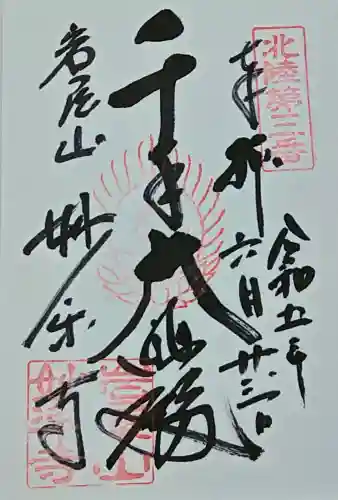 北陸第三番
奉拝
令和五年
六月廿三日
千手大悲殿
岩屋山
妙楽寺